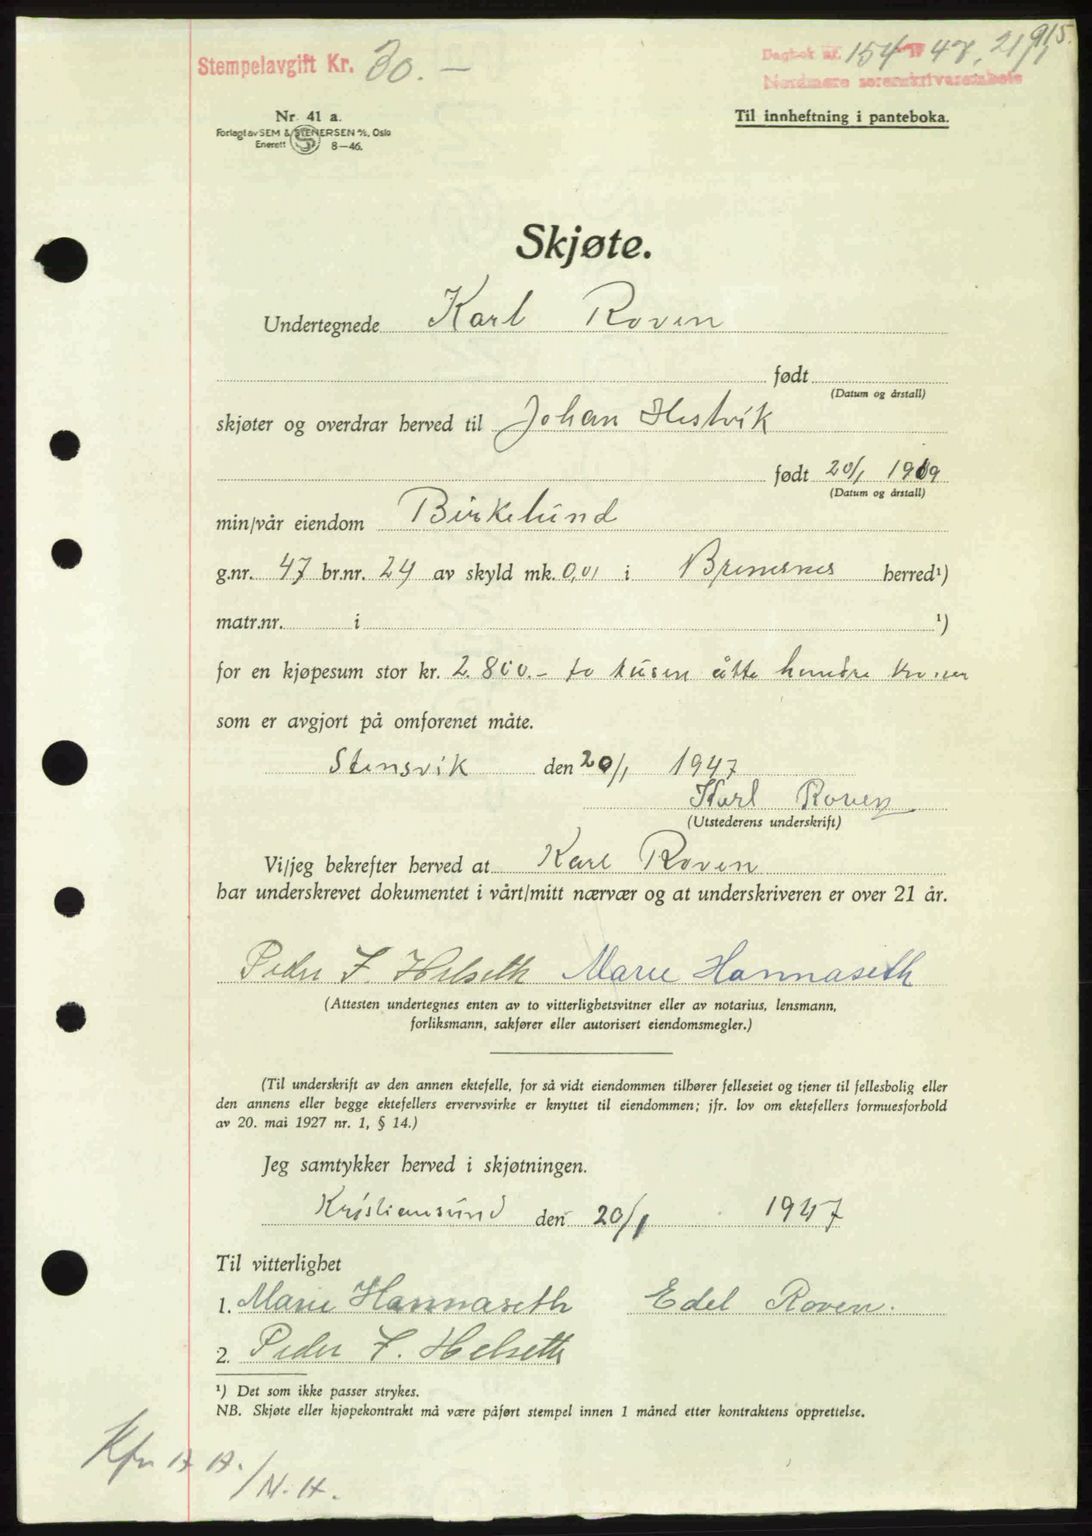 915.
Stempelavgift Kr. 30. —
Dagbok nr. 154 19 47, 21/1
Nordmøre sorenskriverembete
Nr. 41 a.
Forlagt av SEM & STENERSEN A/S, Oslo
Enerett 8—46.
Til innheftning i panteboka.
Skjøte.
Undertegnede Karl Roven
født
(Datum og årstall)
skjøter og overdrar herved til Johan Hestvik
født 20/1 1919
(Datum og årstall)
min/vår eiendom Birkelund
g.nr. 47 br.nr. 24 av skyld mk. 0,01 i Bremsnes herred¹)
matr.nr. i ¹)
for en kjøpesum stor kr. 2.800.- to tusen åtte hundre kroner
som er avgjort på omforenet måte.
Stensvik den 20/1 1947
Karl Roven
(Utstederens underskrift)
Vi/jeg bekrefter herved at Karl Roven
har underskrevet dokumentet i vårt/mitt nærvær og at underskriveren er over 21 år.
Peder F. Helseth Marie Hannaseth
(Attesten undertegnes enten av to vitterlighetsvitner eller av notarius, lensmann,
forliksmann, sakfører eller autorisert eiendomsmegler.)
(Til underskrift av den annen ektefelle, for så vidt eiendommen tilhører felleseiet og tjener til fellesbolig eller
den annens eller begge ektefellers ervervsvirke er knyttet til eiendommen; jfr. lov om ektefellers formuesforhold
av 20. mai 1927 nr. 1, § 14.)
Jeg samtykker herved i skjøtningen.
Kristiansund den 20/1 1947
Til vitterlighet
1. Marie Hannaseth Edel Roven.
2. Peder F. Helseth
¹) Det som ikke passer strykes.
NB. Skjøte eller kjøpekontrakt må være påført stempel innen 1 måned etter kontraktens opprettelse.
N.H.